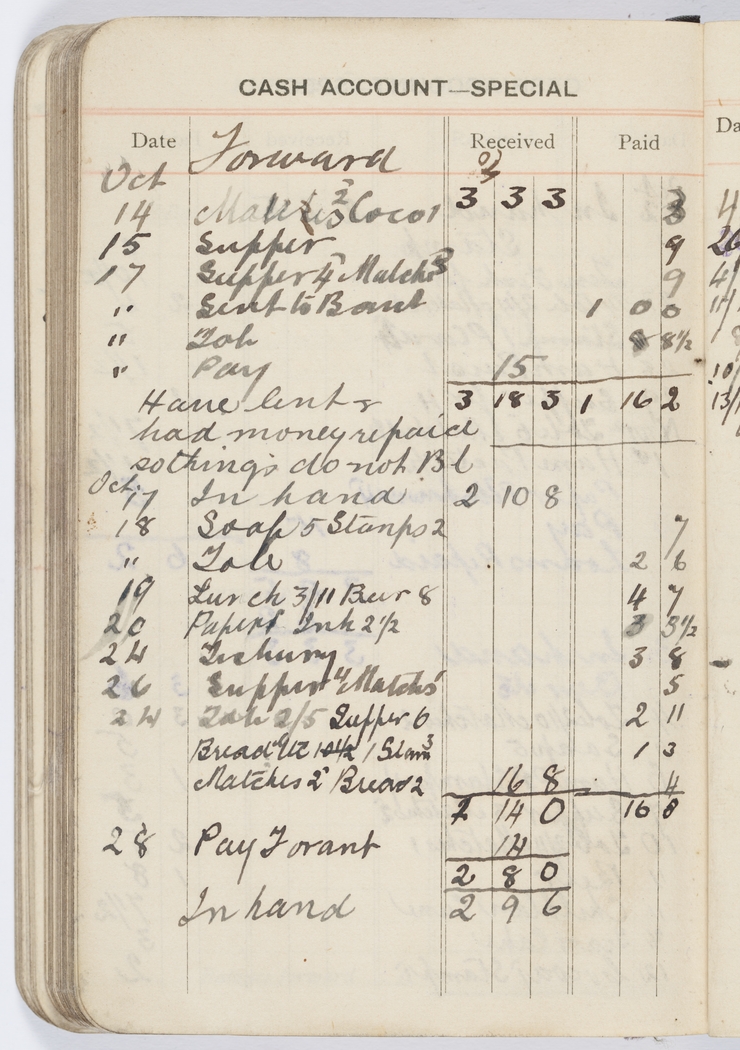 CASH ACCOUNT—SPECIAL
Date Received Paid
Forward
Oct 3 3 3
14 2 Coco 1 3
15 Supper 9
17 Supper 4 Matchs 9
" Sent to 1 0 0
" Tob 8 8½
" Pay 15
Have lent & 3 18 3 1 16 2
had money repaid
so things do not Bl
Oct. 17 In hand 2 10 8
18 Soap 5 Stamps 2 7
" Tob 2 6
19 Lunch 3/11 Beer 8 4 7
20 Paper Ink 2½ 3 3½
24 3 8
26 Supper 4 Matchs 5
24 Tob 2/5 Supper 6 2 11
Bread 1 Stam 3 1 3
Matches 2 Bread 2 16 8 4
2 14 0 16 8
28 Pay Torant 14
2 8 0
In hand 2 9 6
Da